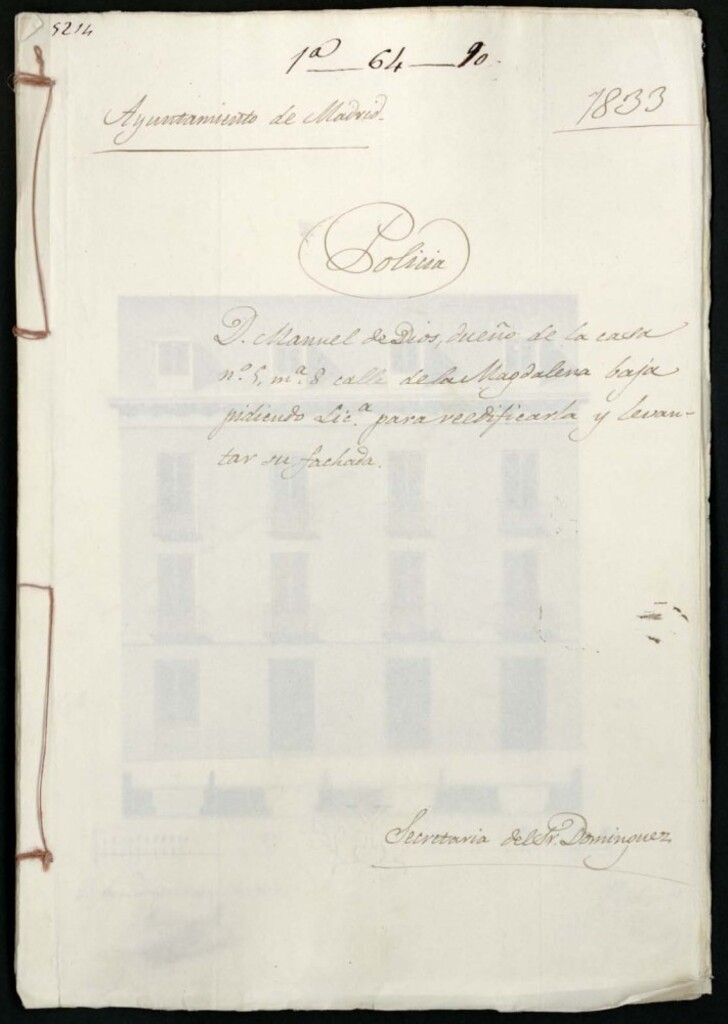 5214
1ª—64—90.
Ayuntamiento de Madrid.
1833
Policia
D. Manuel de Dios, dueño de la casa
nº. 5, mª. 8 calle de la Magdalena baja
pidiendo Lic.ª para reedificarla y levan-
tar su fachada.
Secretaria del Sr. Dominguez